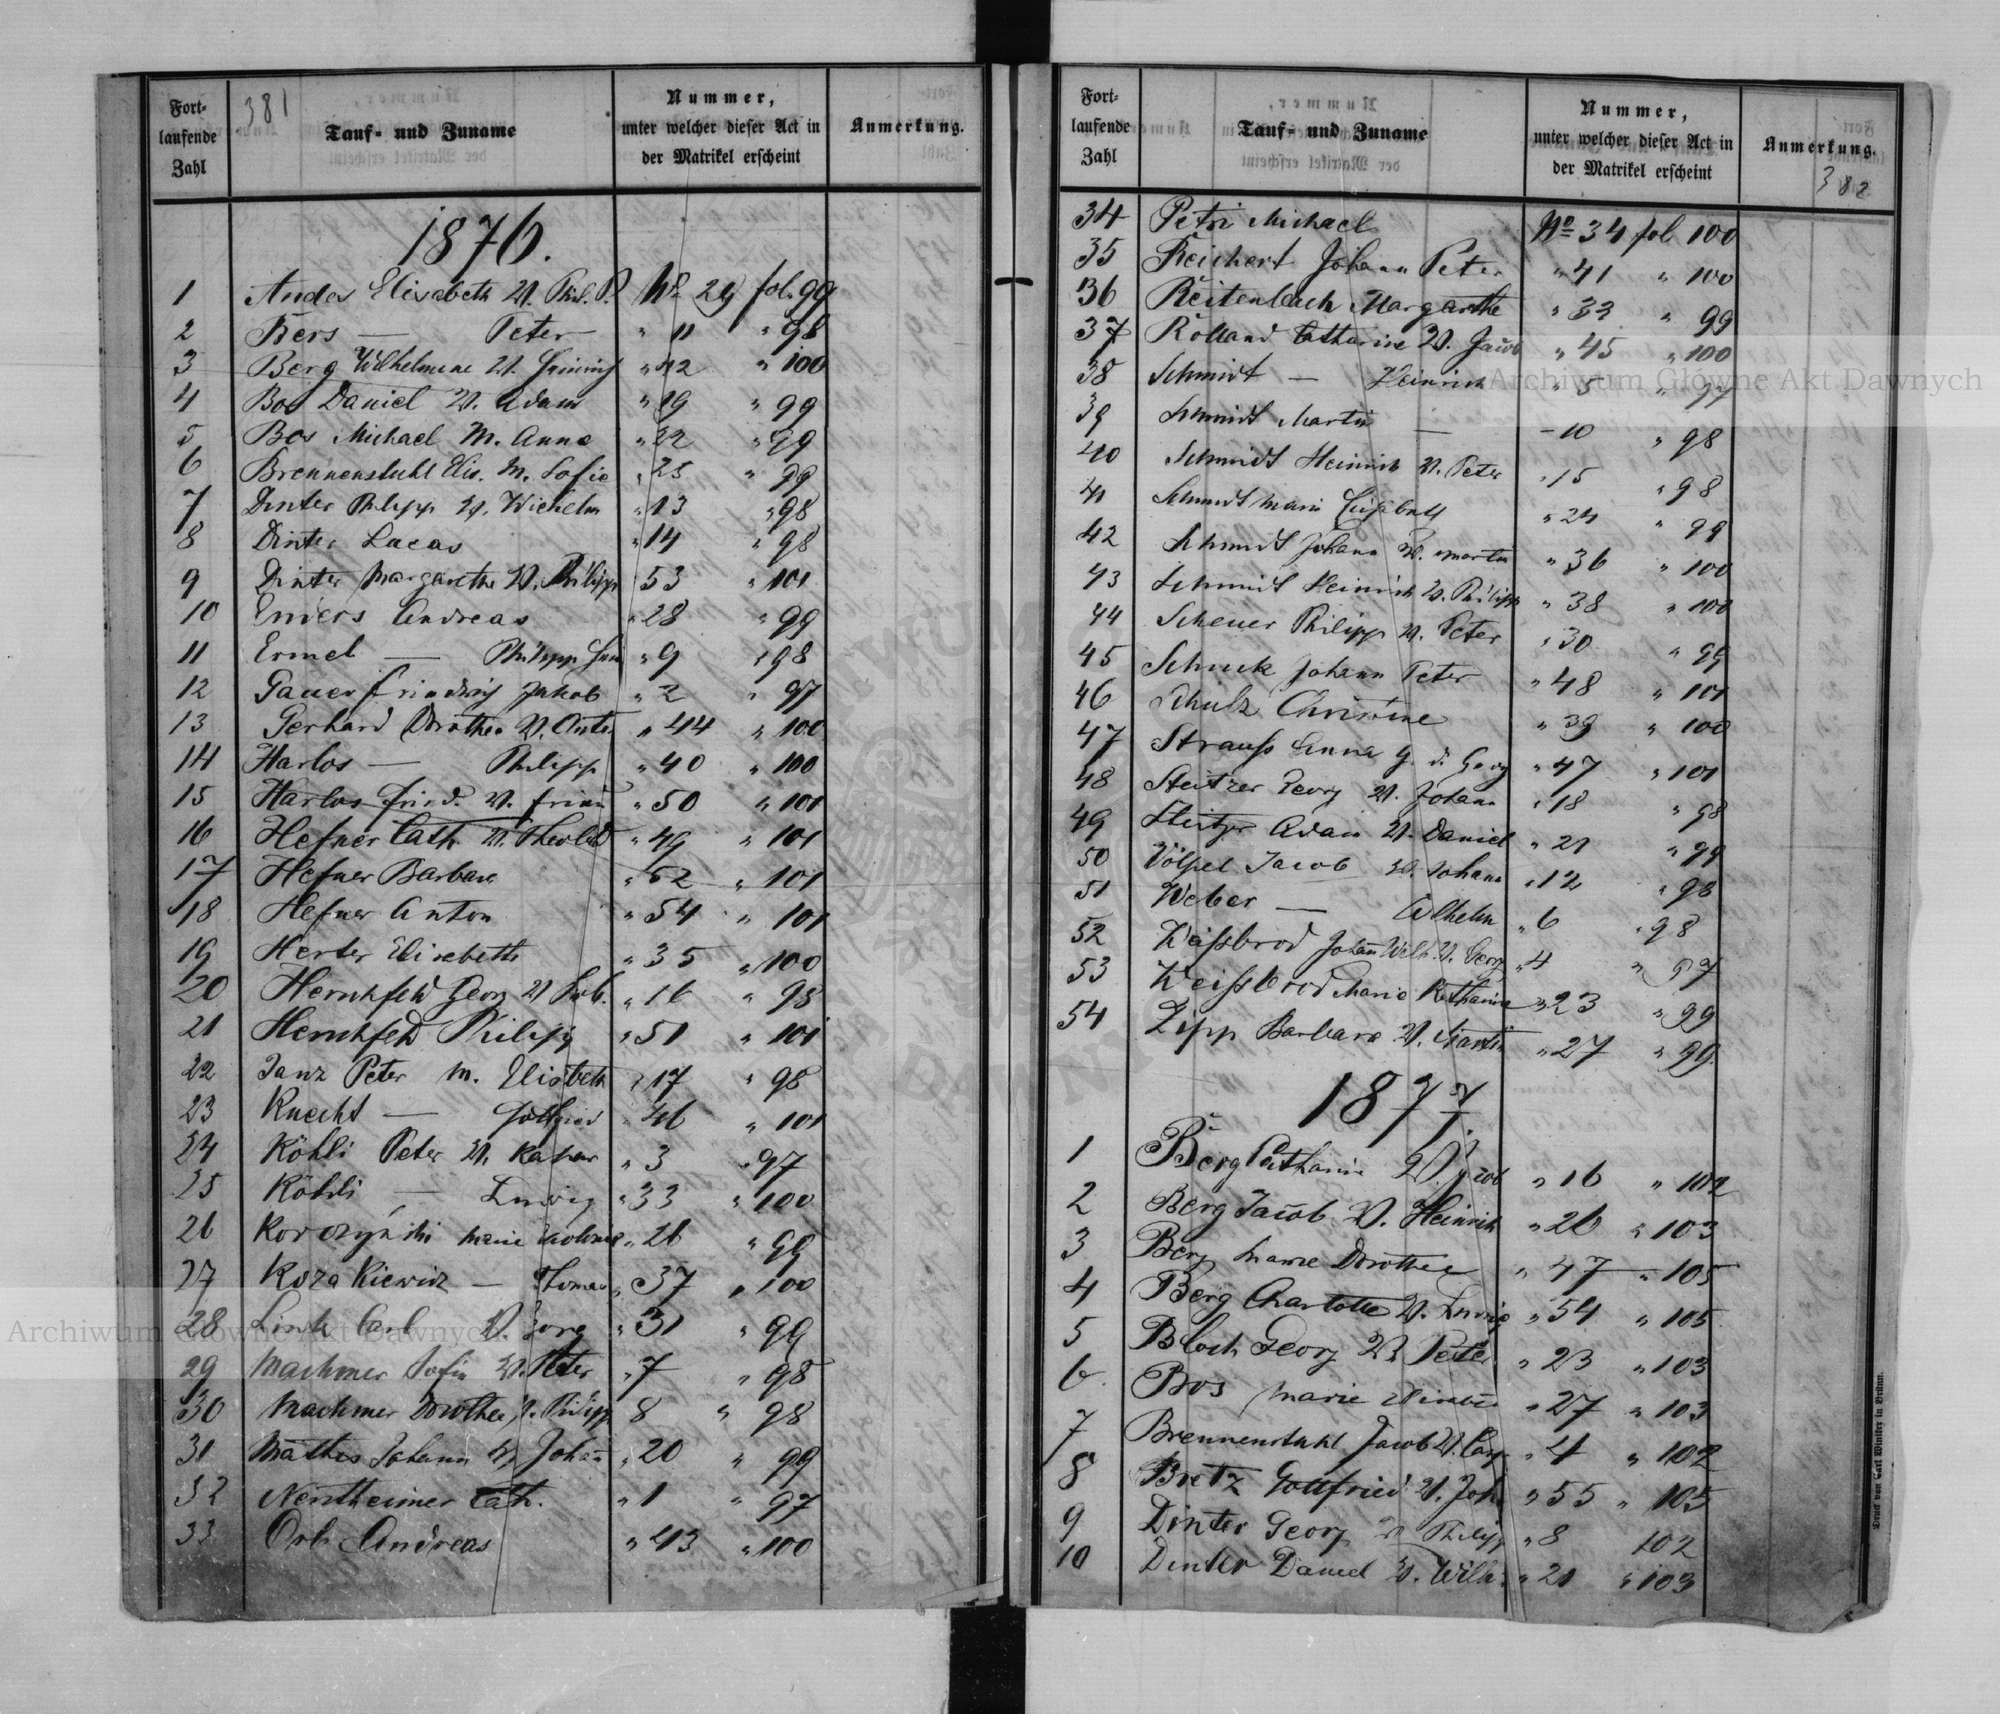 381
Fort-
laufende
Zahl
Tauf- und Zuname
Nummer,
unter welcher dieser Act in
der Matrikel erscheint
Anmerkung.
1876.
1 Andes Elisabeth V. Phil. P. No 29 fol. 99
2 Bers — Peter " 11 " 98
3 Berg Wilhelmine V. Heinrich " 42 " 100
4 Bos Daniel V. Adam " 19 " 99
5 Bos Michael M. Anna " 22 " 99
6 Brennenstuhl Elis. M. Sofie " 25 " 99
7 Dinter Philipp V. Wilhelm " 13 " 98
8 Dinter Lucas " 14 " 98
9 Dinter Margarethe V. Philipp 53 " 101
10 Emers Andreas " 28 " 99
11 Ermel — Philipp " 9 " 98
12 Gauer Friedrich Jakob " 2 " 97
13 Gerhard Dorothea V. Anton " 44 " 100
14 Harlos — Philipp " 40 " 100
15 Harlos Fried. V. " 50 " 101
16 Hefner Cath. V. " 49 " 101
17 Hefner Barbara " 52 " 101
18 Hefner Anton " 54 " 101
19 Herter Elisabeth " 35 " 100
20 Hernhfeld Georg V " 16 " 98
21 Hernhfeld Philipp " 51 " 101
22 Janz Peter M. Elisbeth " 17 " 98
23 Knecht — Gottfried " 46 " 101
24 Köhli Peter V. Kaspar " 3 " 97
25 Köhli — Ludwig " 33 " 100
26 Korczyński Marie " 26 " 99
27 Kozakiewicz — Thomas " 37 " 100
28 Link Carl V. Georg " 31 " 99
29 Machmer Sofie V. Peter " 7 " 98
30 Machmer Dorothea V. Philipp 8 " 98
31 Mathes Johann V. Johann " 20 " 99
32 Nentheimer Cath. " 1 " 97
33 Orb Andreas " 43 " 100
Fort-
laufende
Zahl
Tauf- und Zuname
Nummer,
unter welcher dieser Act in
der Matrikel erscheint
Anmerkung.
382
34 Petri Michael No 34 fol 100
35 Reichert Johann Peter " 41 " 100
36 Reitenbach Margarethe " 32 " 99
37 Rolland Catharine V. Jacob " 45 " 100
38 Schmidt — Heinrich " 5 " 97
39 Schmidt Martin — " 10 " 98
40 Schmidt Heinrich V. Peter " 15 " 98
41 Schmidt Marie Elisabeth " 24 " 99
42 Schmidt Johann V. Martin " 36 " 100
43 Schmidt Heinrich V. Philipp " 38 " 100
44 Scheuer Philipp V. Peter " 30 " 99
45 Schuck Johann Peter " 48 " 101
46 Schulz Christine " 39 " 100
47 Strauss Anna G. d. Georg " 47 " 101
48 Steitzer Georg V. Johann " 18 " 98
49 Steitzer Adam V. Daniel " 21 " 99
50 Völpel Jacob V. Johann " 12 " 98
51 Weber — Wilhelm " 6 " 98
52 Weissbrod Johann Wilh. V. Georg " 4 " 97
53 Weissbrod Marie Katharina " 23 " 99
54 Zipp Barbara V. Martin " 27 " 99.
1877.
1 Berg Catharine V. Jacob " 16 " 102
2 Berg Jacob V. Heinrich " 26 " 103
3 Berg Marie Dorothea " 47 " 105
4 Berg Charlotte V. Ludwig " 54 " 105
5 Bloch Georg V. Peter " 23 " 103
6 Bos Marie " 27 " 103
7 Brennenstuhl Jacob V. Casp " 4 " 102
8 Bretz Gottfried V. Joh. " 55 " 105
9 Dinter Georg V Philipp " 8 102
10 Dinter Daniel V. Wilh. " 21 " 103
Druck von Carl Winiker in Brünn.
Archiwum Główne Akt Dawnych
Archiwum Główne Akt Dawnych